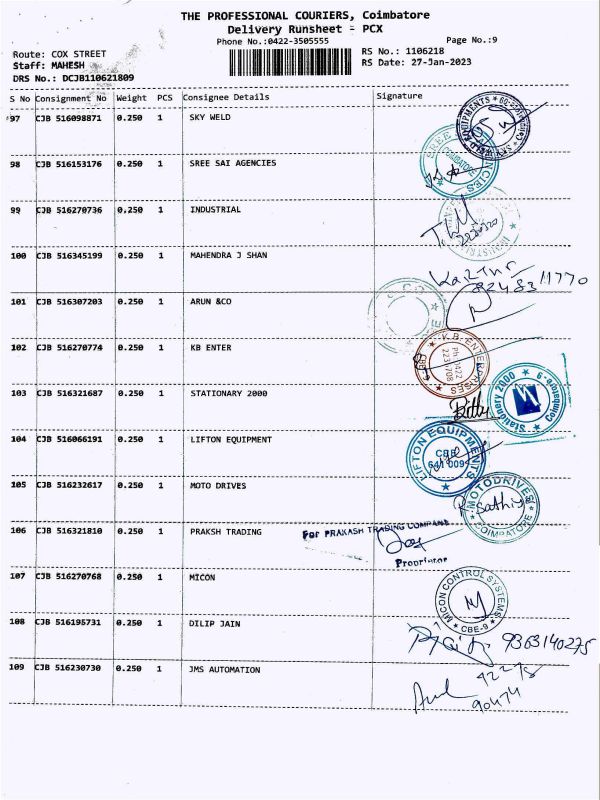 THE PROFESSIONAL COURIERS, Coimbatore
Delivery Runsheet - PCX
Phone No.:0422-3505555
Page No.:9
Route: COX STREET
RS No.: 1106218
Staff: MAHESH
RS Date: 27-Jan-2023
DRS No.: DCJB110621809
S No Consignment No Weight PCS Consignee Details Signature
97 CJB 516098871 0.250 1 SKY WELD
98 CJB 516153176 0.250 1 SREE SAI AGENCIES
SREE
COIMBATORE
99 CJB 516270736 0.250 1 INDUSTRIAL
100 CJB 516345199 0.250 1 MAHENDRA J SHAN
101 CJB 516307203 0.250 1 ARUN &CO
102 CJB 516270774 0.250 1 KB ENTER
K.B. ENTERPRISES
Ph: 0422
2231708
103 CJB 516321687 0.250 1 STATIONARY 2000
Stationery 2000
104 CJB 516066191 0.250 1 LIFTON EQUIPMENT
LIFTON EQUIPMENTS
CBE
641 009
105 CJB 516232617 0.250 1 MOTO DRIVES
MOTODRIVES
COIMBATORE
106 CJB 516321810 0.250 1 PRAKSH TRADING
For PRAKASH TRADING COMPANY
Proprietor
107 CJB 516270768 0.250 1 MICON
MICON CONTROL SYSTEMS
CBE-9
108 CJB 516195731 0.250 1 DILIP JAIN
9363140275
109 CJB 516230730 0.250 1 JMS AUTOMATION
90474